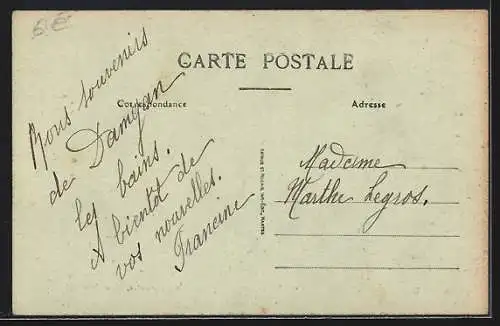 6 €
CARTE POSTALE
Correspondance
Adresse
Nous souvenirs
de Damgan
les bains.
A bientôt de
vos nouvelles.
Francine
Madame
Marthe Legros.